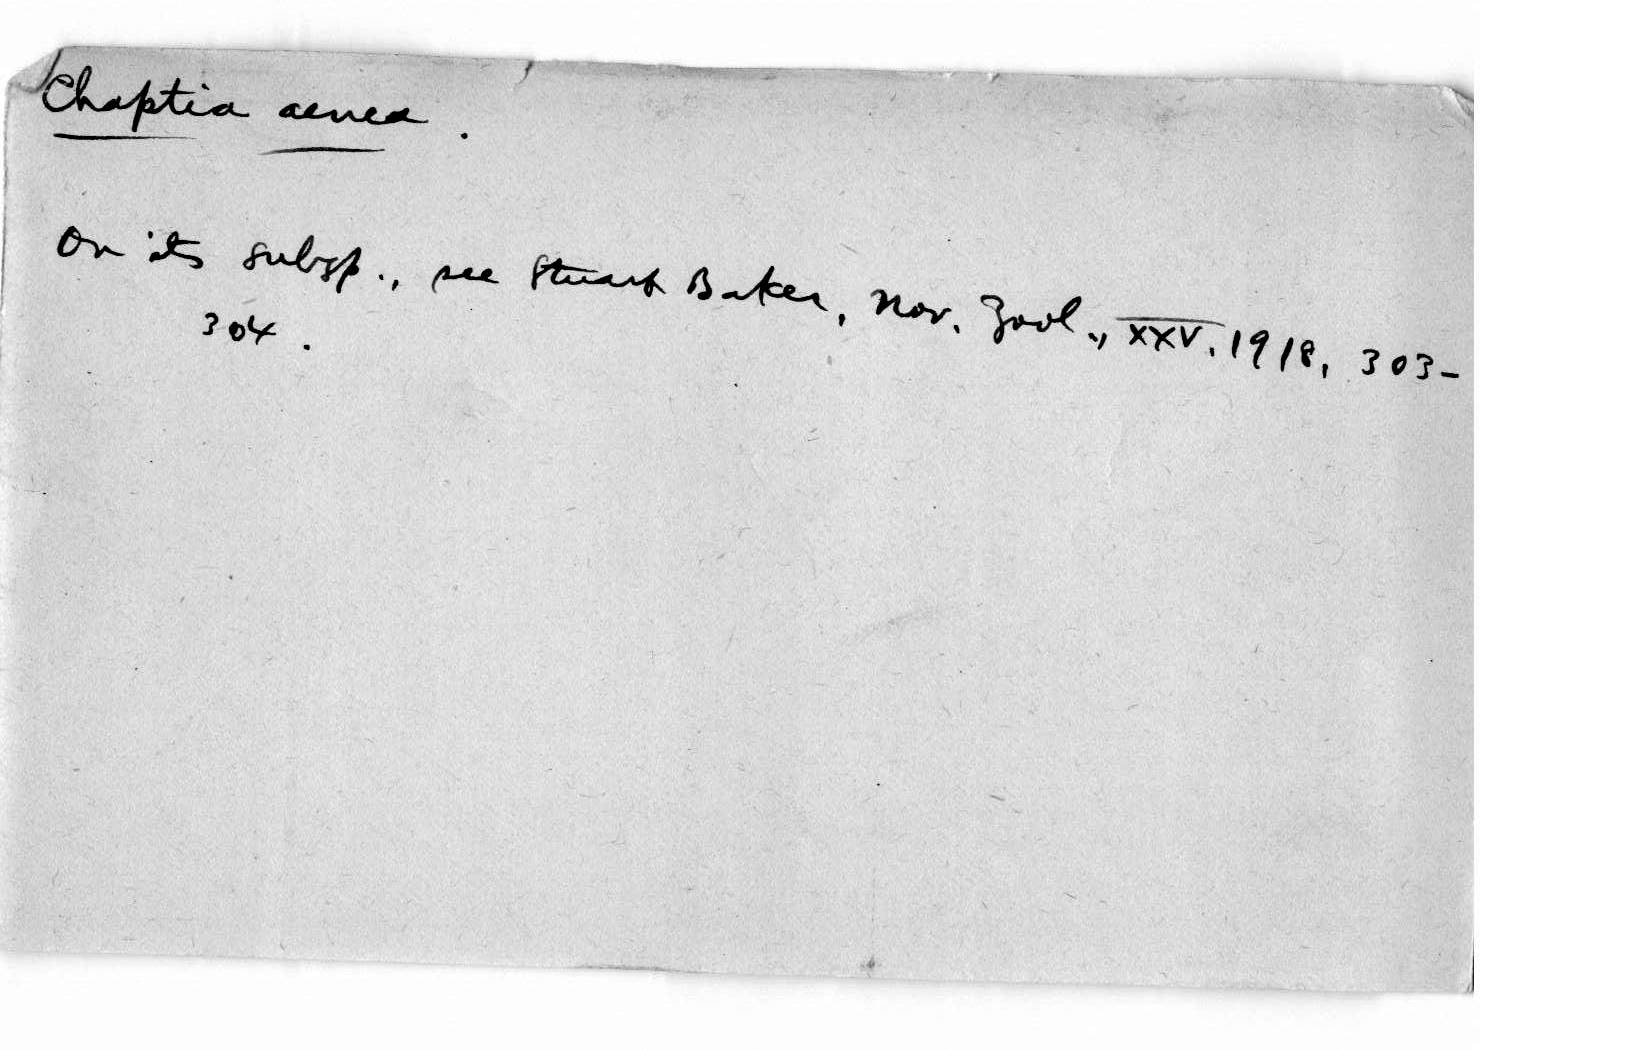 Chaptia aenea.
On its subsp., see Stuart Baker, Nov. Zool., XXV, 1918, 303-
304.